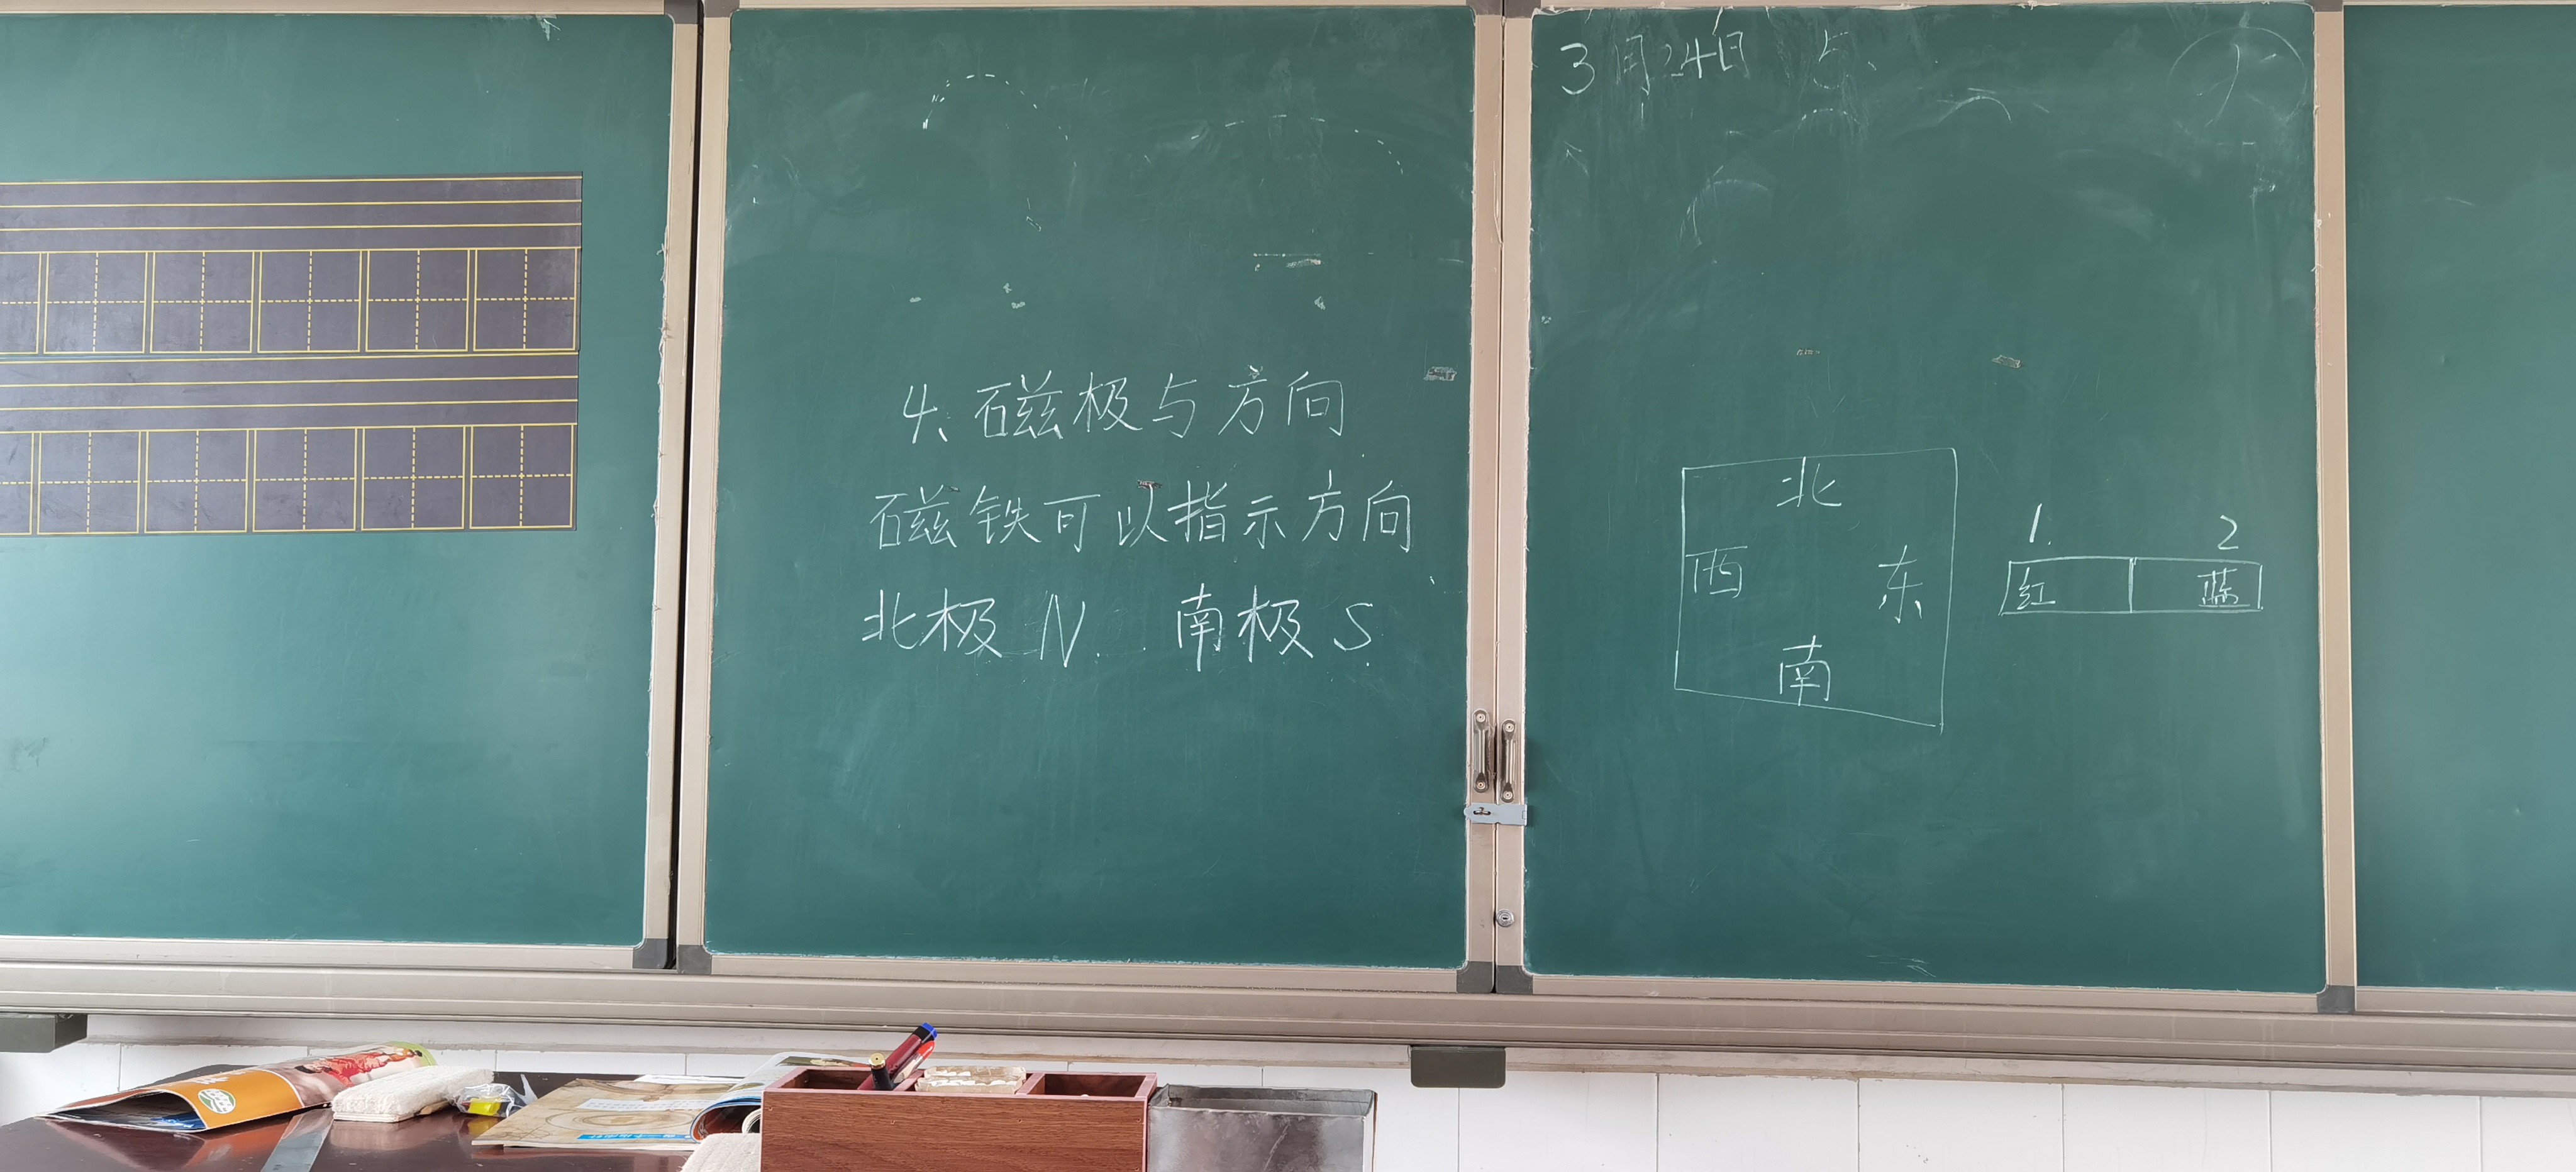 4、磁极与方向
磁铁可以指示方向
北极 N 南极 S
3月24日
北
西 东
南
1. 2
红 蓝